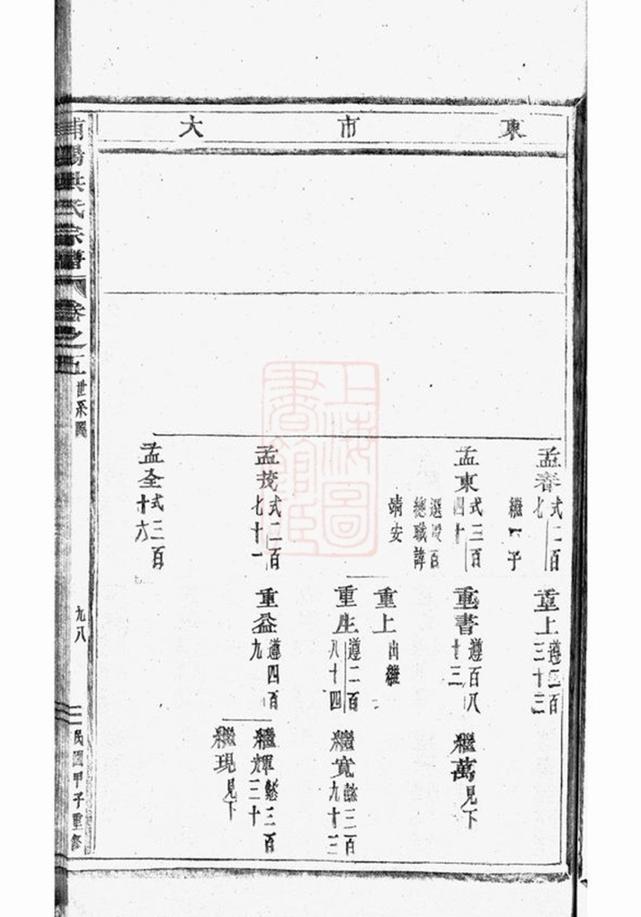 東市大
孟春式二百七
繼一子
重上遵二百三十三
孟東式三百四十
選設百總職諱靖安
重書遵百八十三
繼萬見下
重上出繼
重生遵二百八十四
繼寬懿三百九十三
孟茂式二百七十一
重益遵四百九
繼輝懿三百三十
繼現見下
孟全式三百十六
浦陽洪氏宗譜卷之五
世系圖
九八
民國甲子重修
上海圖書館藏